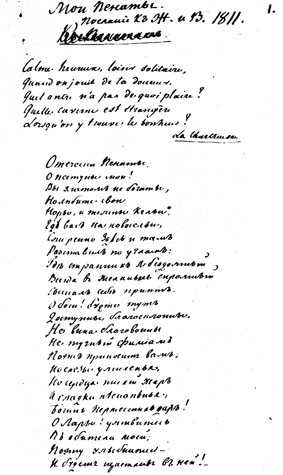 Мои Пенаты.
Послание къ Ж. и В. 1811.
1.
Calme heureux, loisir solitaire,
Quand on jouit de ta douceur,
Quel antre n'a pas de quoi plaire?
Quelle caverne est étrangère
Lorsqu'on y trouve le bonheur?
La Chartreuse
Отечески Пенаты,
О пестуны мои!
Вы златомъ не богаты,
Но любите свои
Норы, и темны кельи,
Гдѣ васъ на новосельи,
Смиренно здѣсь и тамъ
Разставилъ по угламъ;
Гдѣ странникъ я бездомный,
Всегда въ желаньяхъ скромный,
Сыскалъ себѣ приютъ.
О боги! будьте тутъ
Доступны, благосклонны!
Не вина благовонны
Не тучный фиміамъ
Поэтъ приноситъ вамъ,
Но слезы умиленья,
Но сердца тихій жаръ
И сладки пѣснопѣнья,
Богинь Пермесскихъ даръ!
О Лары! уживитесь
Въ обители моей,
Поэту улыбнитесь —
И будетъ щастливъ въ ней!..